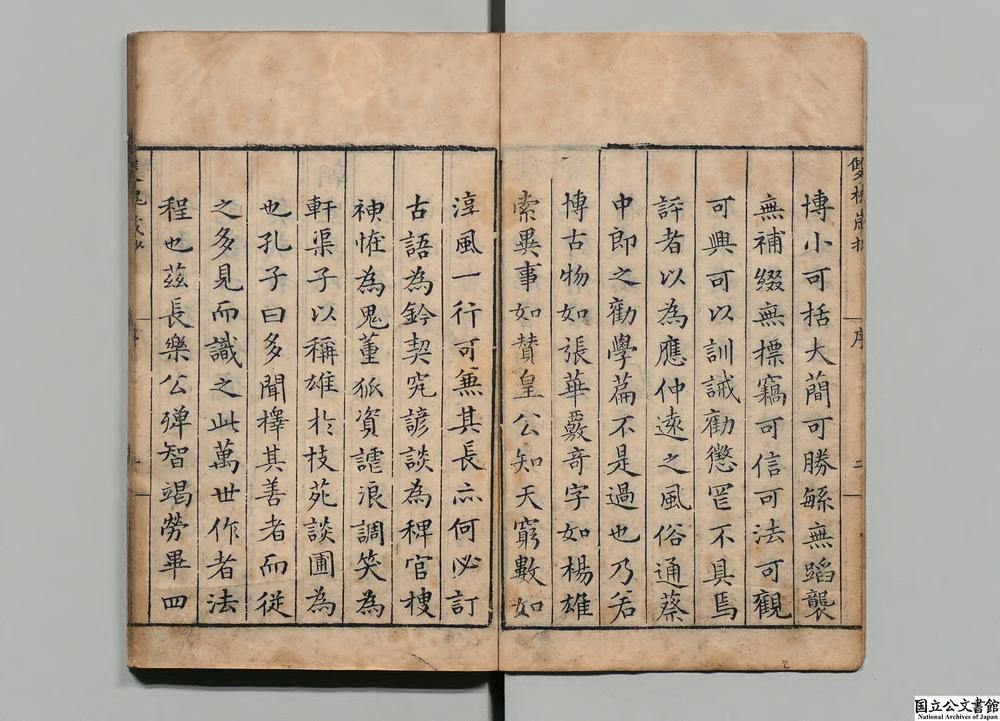 博小可括大𥳑可勝緐無蹈襲
無補綴無標竊可信可法可觀
可興可以訓誡勸懲罔不具焉
評者以為應仲遠之風俗通蔡
中郎之勸學篇不是過也乃若
博古物如張華覈奇字如楊雄
索異事如贊皇公知天窮數如
淳風一行可無其長亦何必訂
古語為鈐契究諺談為稗官搜
神恠為鬼董狐資謔浪調笑為
軒渠子以稱雄於技苑談圃為
也孔子曰多聞擇其善者而從
之多見而識之此萬世作者法
程也茲長樂公殫智竭勞畢四
序
二
国立公文書館
National Archives of Japan